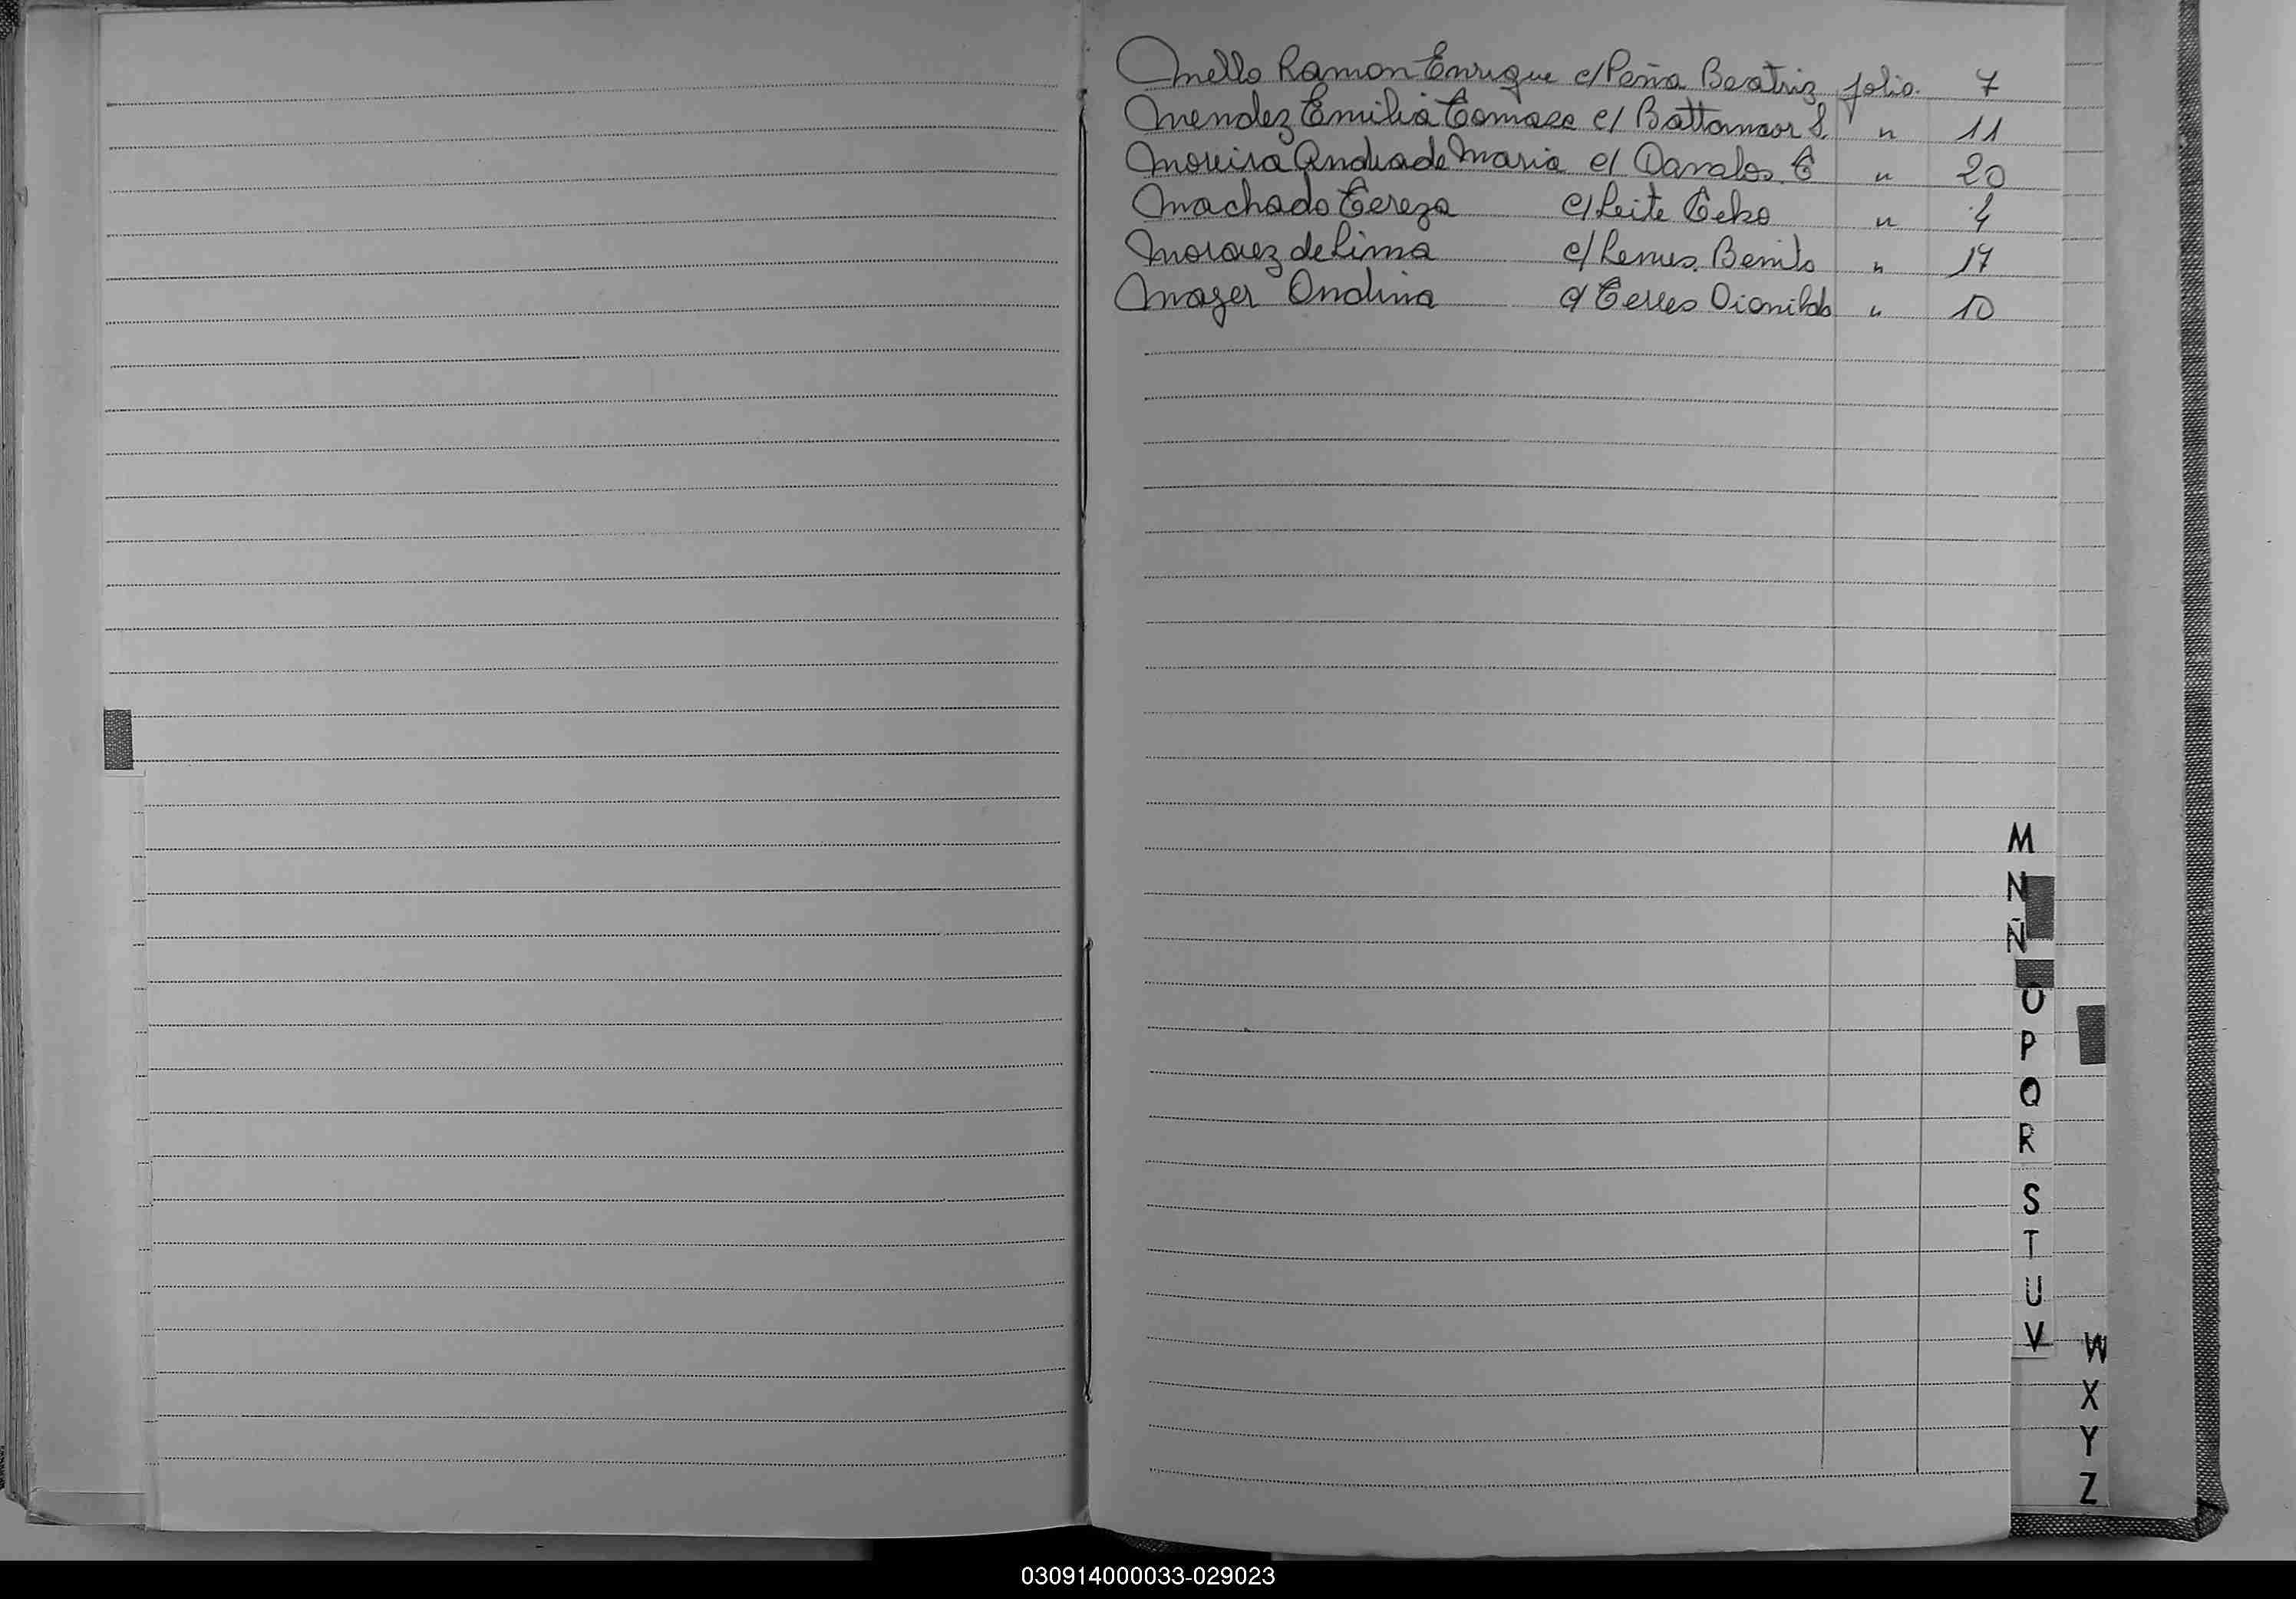 Mello Ramon Enrique c/ Peña Beatriz folio 7
Mendez Emilia Tomasa c/ S. " 11
Moreira Andrade Maria c/ Davalos. T " 20
Machado Tereza c/ Leite " 4
Moraez de Lima c/ Lemes. Benito " 17
Mayer Ondina c/ Terres Dionildo " 10
M
N
Ñ
O
P
Q
R
S
T
U
V
W
X
Y
Z
030914000033-029023